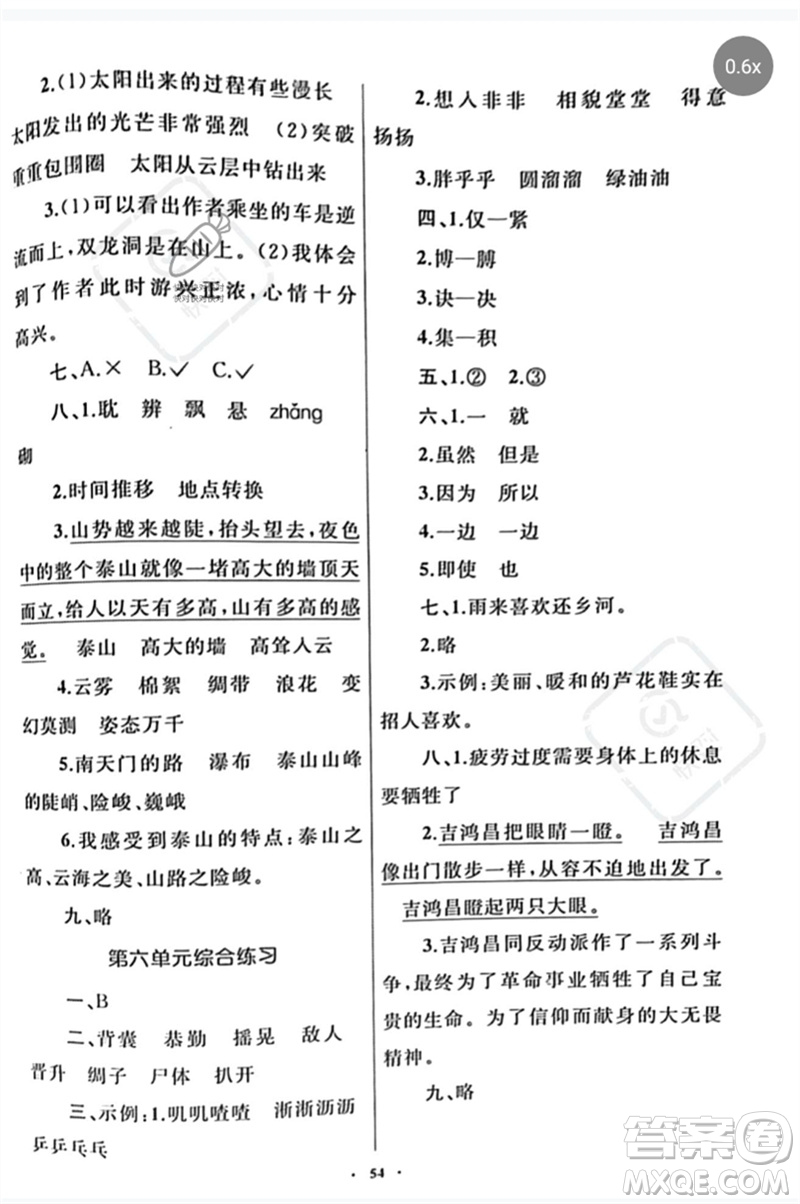 0.6x
2.(1)太阳出来的过程有些漫长
太阳发出的光芒非常强烈 (2)突破
重重包围圈 太阳从云层中钻出来
3.(1)可以看出作者乘坐的车是逆
流而上,双龙洞是在山上。(2)我体会
到了作者此时游兴正浓,心情十分
高兴。
七、A.× B.✓ C.✓
八、1.耽 辨 飘 悬 zhǎng
砌
2.时间推移 地点转换
3.山势越来越陡,抬头望去,夜色
中的整个泰山就像一堵高大的墙顶天
而立,给人以天有多高,山有多高的感
觉。 泰山 高大的墙 高耸人云
4.云雾 棉絮 绸带 浪花 变
幻莫测 姿态万千
5.南天门的路 瀑布 泰山山峰
的陡峭、险峻、巍峨
6.我感受到泰山的特点:泰山之
高、云海之美、山路之险峻。
九、略
第六单元综合练习
一、B
二、背囊 恭勤 摇晃 敌人
晋升 绸子 尸体 扒开
三、示例:1.叽叽喳喳 淅淅沥沥
乒乒乓乓
2.想人非非 相貌堂堂 得意
扬扬
3.胖乎乎 圆溜溜 绿油油
四、1.仅—紧
2.博—膊
3.诀—决
4.集—积
五、1.② 2.③
六、1.一 就
2.虽然 但是
3.因为 所以
4.一边 一边
5.即使 也
七、1.雨来喜欢还乡河。
2.略
3.示例:美丽、暖和的芦花鞋实在
招人喜欢。
八、1.疲劳过度需要身体上的休息
要牺牲了
2.吉鸿昌把眼睛一瞪。 吉鸿昌
像出门散步一样,从容不迫地出发了。
吉鸿昌瞪起两只大眼。
3.吉鸿昌同反动派作了一系列斗
争,最终为了革命事业牺牲了自己宝
贵的生命。为了信仰而献身的大无畏
精神。
九、略
· 54 ·
快对快对快对
快对快对快对
答案圈
MXQE.COM